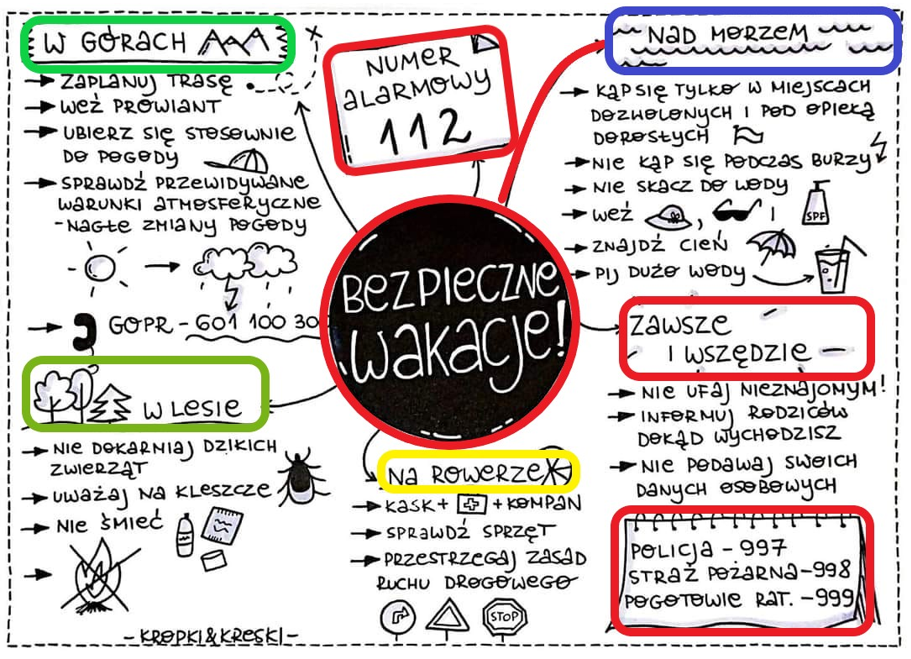 W GÓRACH
→ ZAPLANUJ TRASĘ
→ WEŹ PROWIANT
→ UBIERZ SIĘ STOSOWNIE
DO POGODY
→ SPRAWDŹ PRZEWIDYWANE
WARUNKI ATMOSFERYCZNE
- NAGŁE ZMIANY POGODY
→ GOPR - 601 100 300
W LESIE
→ NIE DOKARMIAJ DZIKICH
ZWIERZĄT
→ UWAŻAJ NA KLESZCZE
→ NIE ŚMIEĆ
- KROPKI & KRESKI -
NUMER
ALARMOWY
112
BEZPIECZNE
WAKACJE!
NA ROWERZE
→ KASK + + KOMPAN
→ SPRAWDŹ SPRZĘT
→ PRZESTRZEGAJ ZASAD
RUCHU DROGOWEGO
STOP
NAD MORZEM
→ KĄP SIĘ TYLKO W MIEJSCACH
DOZWOLONYCH I POD OPIEKĄ
DOROSŁYCH
→ NIE KĄP SIĘ PODCZAS BURZY
→ NIE SKACZ DO WODY
→ WEŹ , I
SPF
→ ZNAJDŹ CIEŃ
→ PIJ DUŻO WODY
ZAWSZE
I WSZĘDZIE
→ NIE UFAJ NIEZNAJOMYM!
→ INFORMUJ RODZICÓW
DOKĄD WYCHODZISZ
→ NIE PODAWAJ SWOICH
DANYCH OSOBOWYCH
POLICJA - 997
STRAŻ POŻARNA - 998
POGOTOWIE RAT. - 999